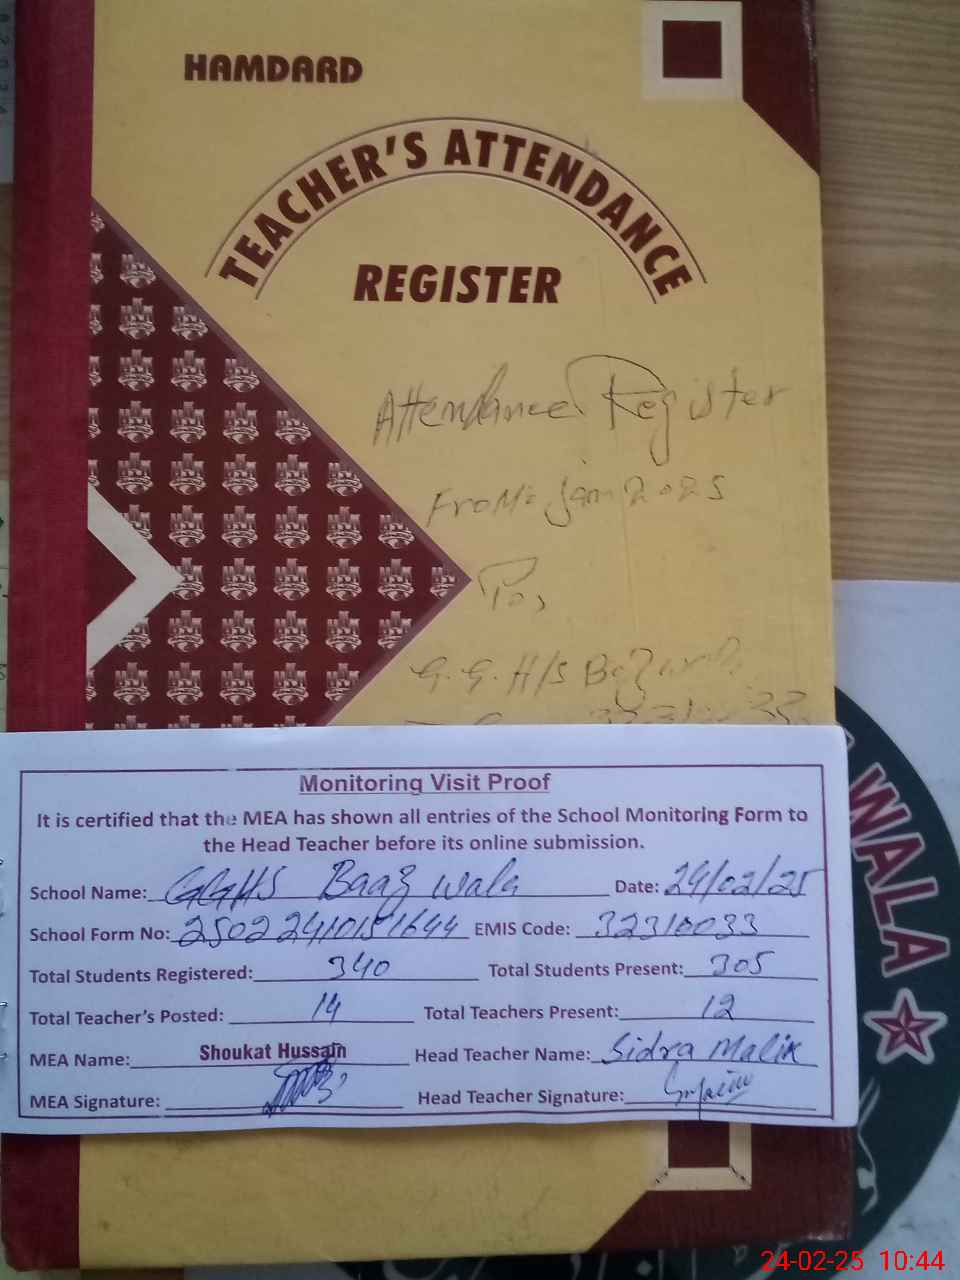 HAMDARD
TEACHER'S ATTENDANCE
REGISTER
Attendance Register
From: Jan 2025
For
G.G.H/S Bazwala
Monitoring Visit Proof
It is certified that the MEA has shown all entries of the School Monitoring Form to
the Head Teacher before its online submission.
School Name: GGHS Baaz wala Date: 24/02/25
School Form No: 25022410151644 EMIS Code: 32310033
Total Students Registered: 340 Total Students Present: 305
Total Teacher's Posted: 14 Total Teachers Present: 12
MEA Name: Shoukat Hussain Head Teacher Name: Sidra Malik
MEA Signature: Head Teacher Signature:
WALA
24-02-25 10:44